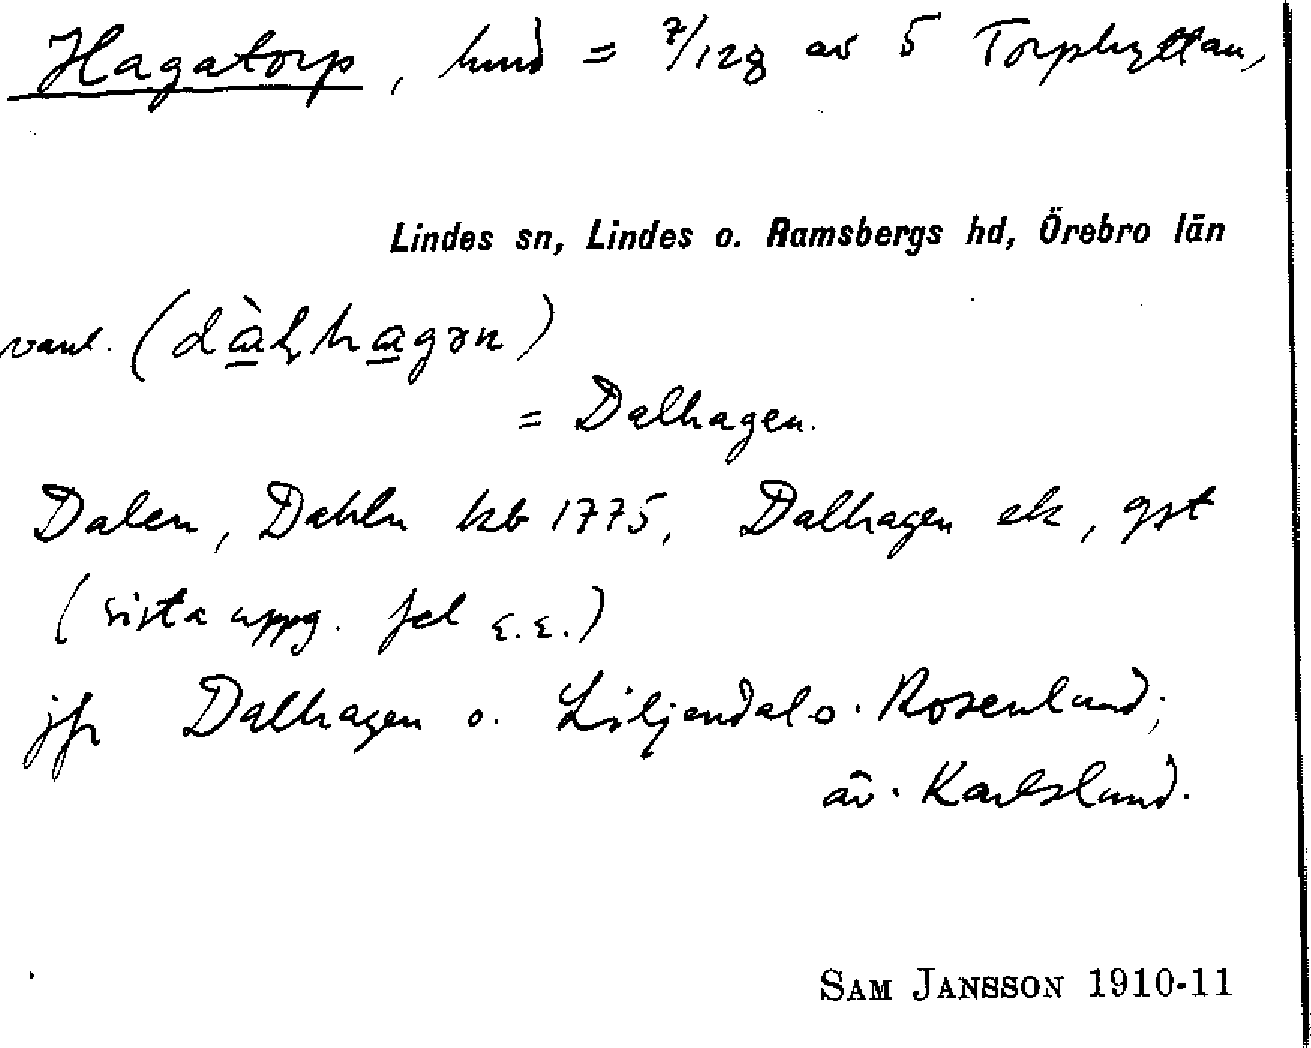 Hagatorp, hmd = 7/128 av 5 Torphyttan,
Lindes sn, Lindes o. Ramsbergs hd, Örebro län
vanl. (dàḷhagən)
= Dalhagen.
Dalen, Dahln kb 1775, Dalhagen ek, gst
(sista uppg. fel S.E.)
jfr Dalhagen o. Liljendal o. Rosenlund;
äv. Karlslund.
SAM JANSSON 1910-11